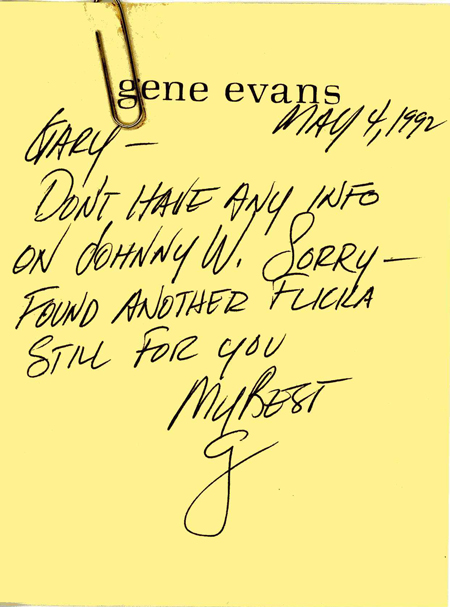 gene evans
MAY 4, 1992
GARY —
DON'T HAVE ANY INFO
ON JOHNNY W. SORRY —
FOUND ANOTHER FLICKA
STILL FOR YOU
MY BEST
G